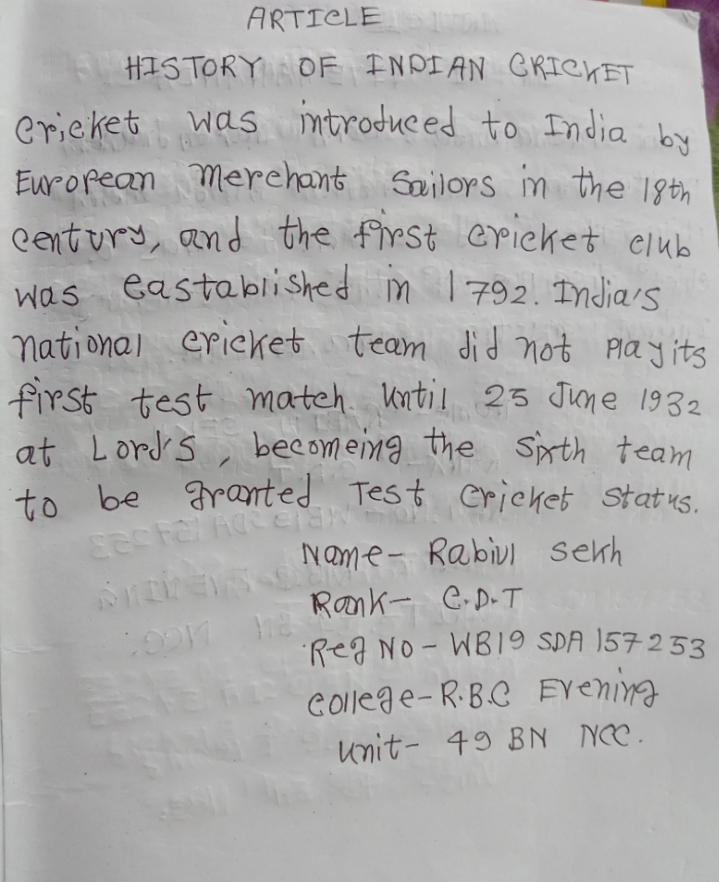 ARTICLE
HISTORY OF INDIAN CRICKET
Cricket was introduced to India by
European merchant Sailors in the 18th
century, and the first cricket club
was eastabiished in 1792. India's
national cricket team did not play its
first test match until 25 June 1932
at Lord's, becomeing the sixth team
to be granted Test cricket status.
Name- Rabiul sekh
Rank- C.D.T
Reg No - WB19 SDA 157253
college- R.B.C Evening
unit- 49 BN NCC.